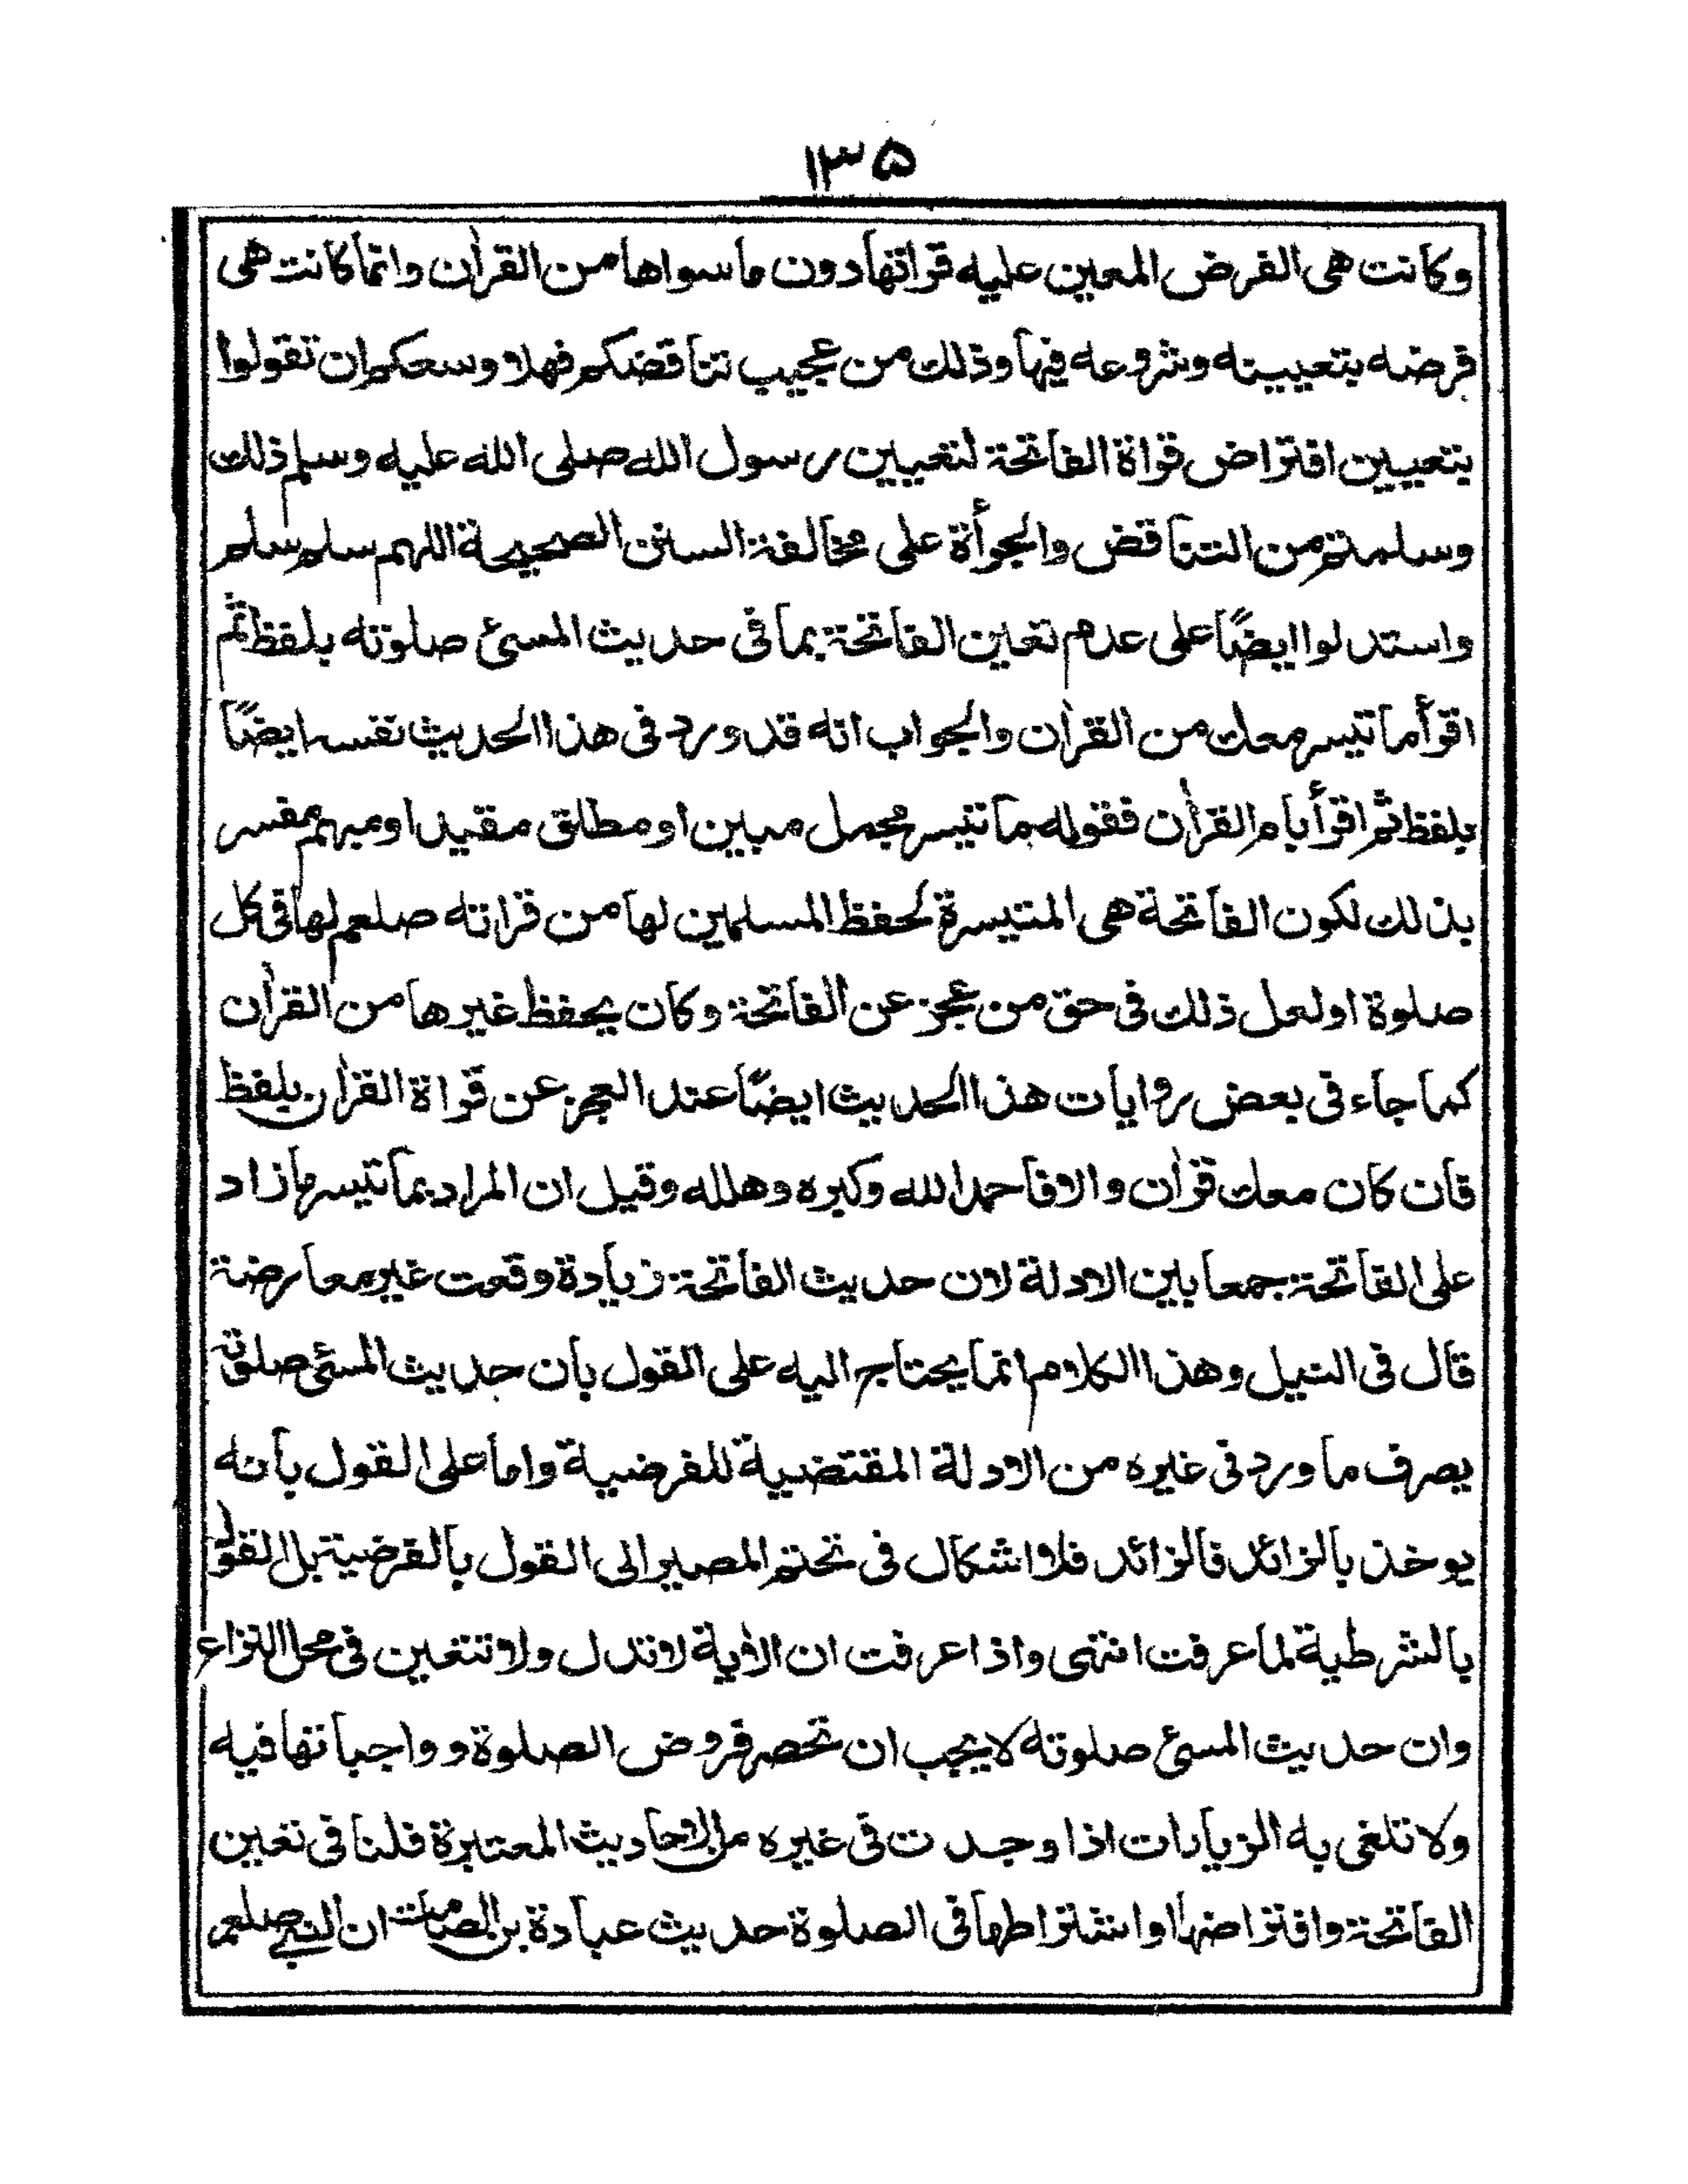 ۱۳۵
وكانت هى الفرض المعين عليه قراتها دون ما سواها من القرأن وانما كانت هى
فرضه بتعيينه وشروعه فيها وذلك من عجيب تناقضكم فهلا وسعكم ان تقولوا
بتعيين افتراض قراة الفاتحة لتعيين رسول الله صلى الله عليه وسلم ذلك
وسلمتم من التناقض والجرأة على مخالفة السنن الصحيحة اللهم سلم سلم
واستدلوا ايضًا على عدم تعين الفاتحة بما فى حديث المسئ صلوته بلفظ ثم
اقرأ ما تيسر معك من القرأن والجواب انه قد ورد فى هذا الحديث نفسه ايضًا
بلفظ ثم اقرأ بام القرأن فقوله ما تيسر مجمل مبين او مطلق مقيد او مبهم مفسر
بذلك لكون الفاتحة هى المتيسرة لحفظ المسلمين لها من قراته صلعم لها فى كل
صلوة او لعل ذلك فى حق من عجز عن الفاتحة وكان يحفظ غيرها من القرأن
كما جاء فى بعض روايات هذا الحديث ايضًا عند العجز عن قراة القرأن بلفظ
فان كان معك قرأن والا فاحمد الله وكبره وهلله وقيل ان المراد بما تيسر ما زاد
على الفاتحة جمعا بين الادلة لان حديث الفاتحة زيادة وقعت غير معارضة
قال فى النيل وهذا الكلام انما يحتاج اليه على القول بان حديث المسئ صلوته
يصرف ما ورد فى غيره من الادلة المقتضية للفرضية واما على القول بانه
يوخذ بالزائد فالزائد فلا اشكال فى تحتم المصير الى القول بالفرضية بل القول
بالشرطية لما عرفت انتهى واذا عرفت ان الأية لا تدل ولا تتعين فى محل النزاع
وان حديث المسئ صلوته لا يجب ان تحصر فروض الصلوة وواجباتها فيه
ولا تلغى به الزيادات اذا وجدت فى غيره من الاحاديث المعتبرة فلنا فى تعين
الفاتحة وافتراضها او اشتراطها فى الصلوة حديث عبادة بن الصامت ان النبي صلعم